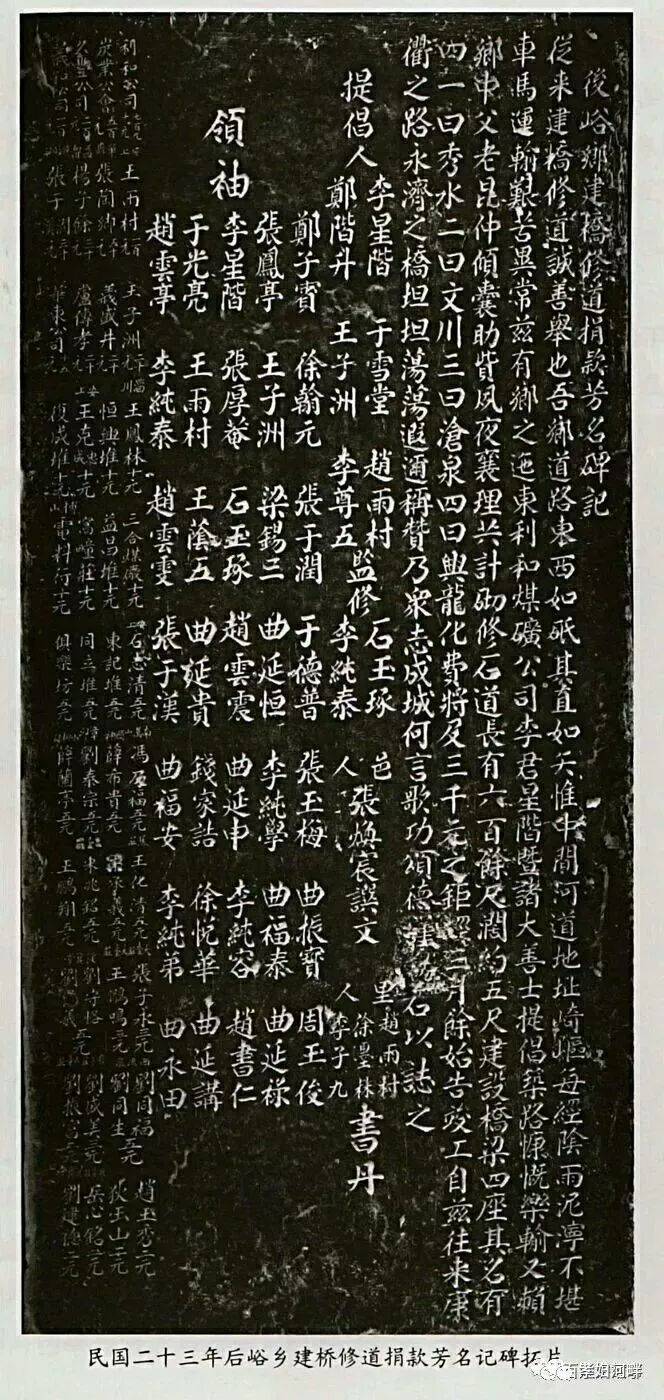 後峪鄉建橋修道捐款芳名碑記
從来建橋修道誠善舉也吾鄉道路東西如砥其直如矢惟中間河道地址崎嶇每經陰雨泥濘不堪
車馬運輸艱苦異常兹有鄉之迤東利和煤礦公司李君星階暨諸大善士提倡築路慷慨樂輸又賴
鄉中父老昆仲傾囊助貲夙夜襄理共計砌修石道長有六百餘尺濶約五尺建設橋梁四座其名有
四一曰秀水二曰文川三曰滄泉四曰興龍化費將及三千元之鉅經三月餘始告竣工自兹往来康
衢之路永濟之橋坦坦蕩蕩遐邇稱贊乃衆志成城何言歌功頌德 石以誌之
提倡人
李星階 于雪堂 趙雨村
鄭階升 王子洲 李尊五
監修 石玉琢 李純泰
邑人 張煥宸譔文
里人 趙雨村 徐豐林 李子九 書丹
領袖
鄭子賓 徐翰元 張于潤 于德普 張玉梅 曲振寶 周玉俊
張鳳亭 王子洲 梁錫三 曲延恒 李純學 曲福泰 曲延祿
李星階 張厚菴 石玉琢 趙雲震 曲延申 李純容 趙書仁
于光亮 王雨村 王蔭五 曲延貴 錢家誥 徐悅華 曲延講
趙雲亭 李純泰 趙雲雯 張于漢 曲福安 李純弟 曲永田
利和公司 王雨村 王子洲 王鳳林十元 三合煤廠十元 石志清五元 馮 福五元 王化清五元 張子丞三元 劉同福三元 趙玉秀二元
炭業公會 張蘭 義成井 恒興堆十元 益昌堆十元 東記堆五元 薛布貴五元 義五元 王鵬鳴三元 劉同生三元 狄玉山二元
公司 楊子餘 盧傳孝 王克 十元 富 莊十元 同立堆五元 劉泰宗五元 朱兆銘五元 劉 三元 劉成美二元 岳心銘二元
義和公司 張子 華東公司 復成堆十元 電料行十元 俱樂坊五元 薛蘭亭五元 王鵬翔五元 劉 三元 劉振富二元 劉建德二元
民国二十三年后峪乡建桥修道捐款芳名记碑拓片